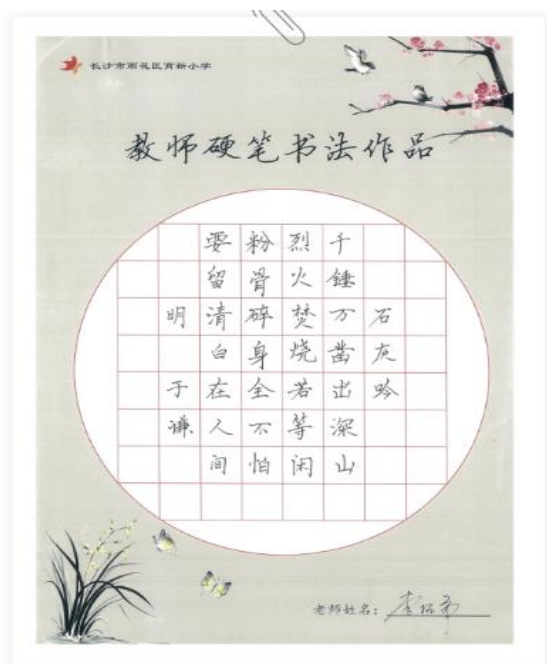 长沙市雨花区育新小学
教师硬笔书法作品
石灰吟
千錘万凿出深山
烈火焚烧若等闲
粉骨碎身全不怕
要留清白在人间
明 于谦
老师姓名：